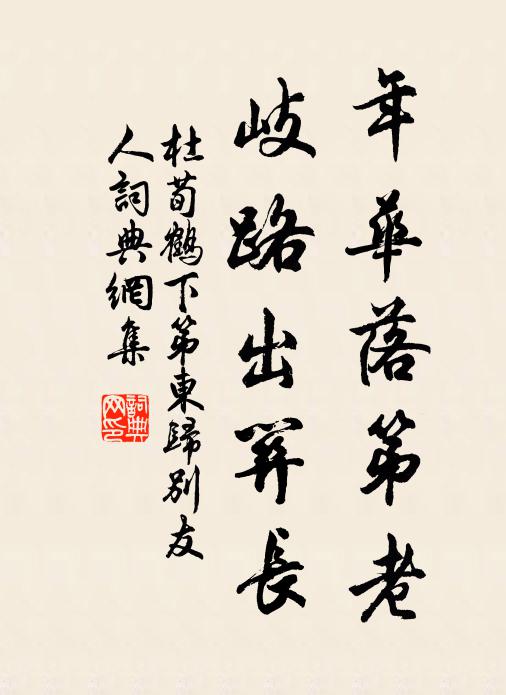 年華落第老
岐路出關長
杜荀鶴下第東歸別友
人詞典網集
詞典
网印